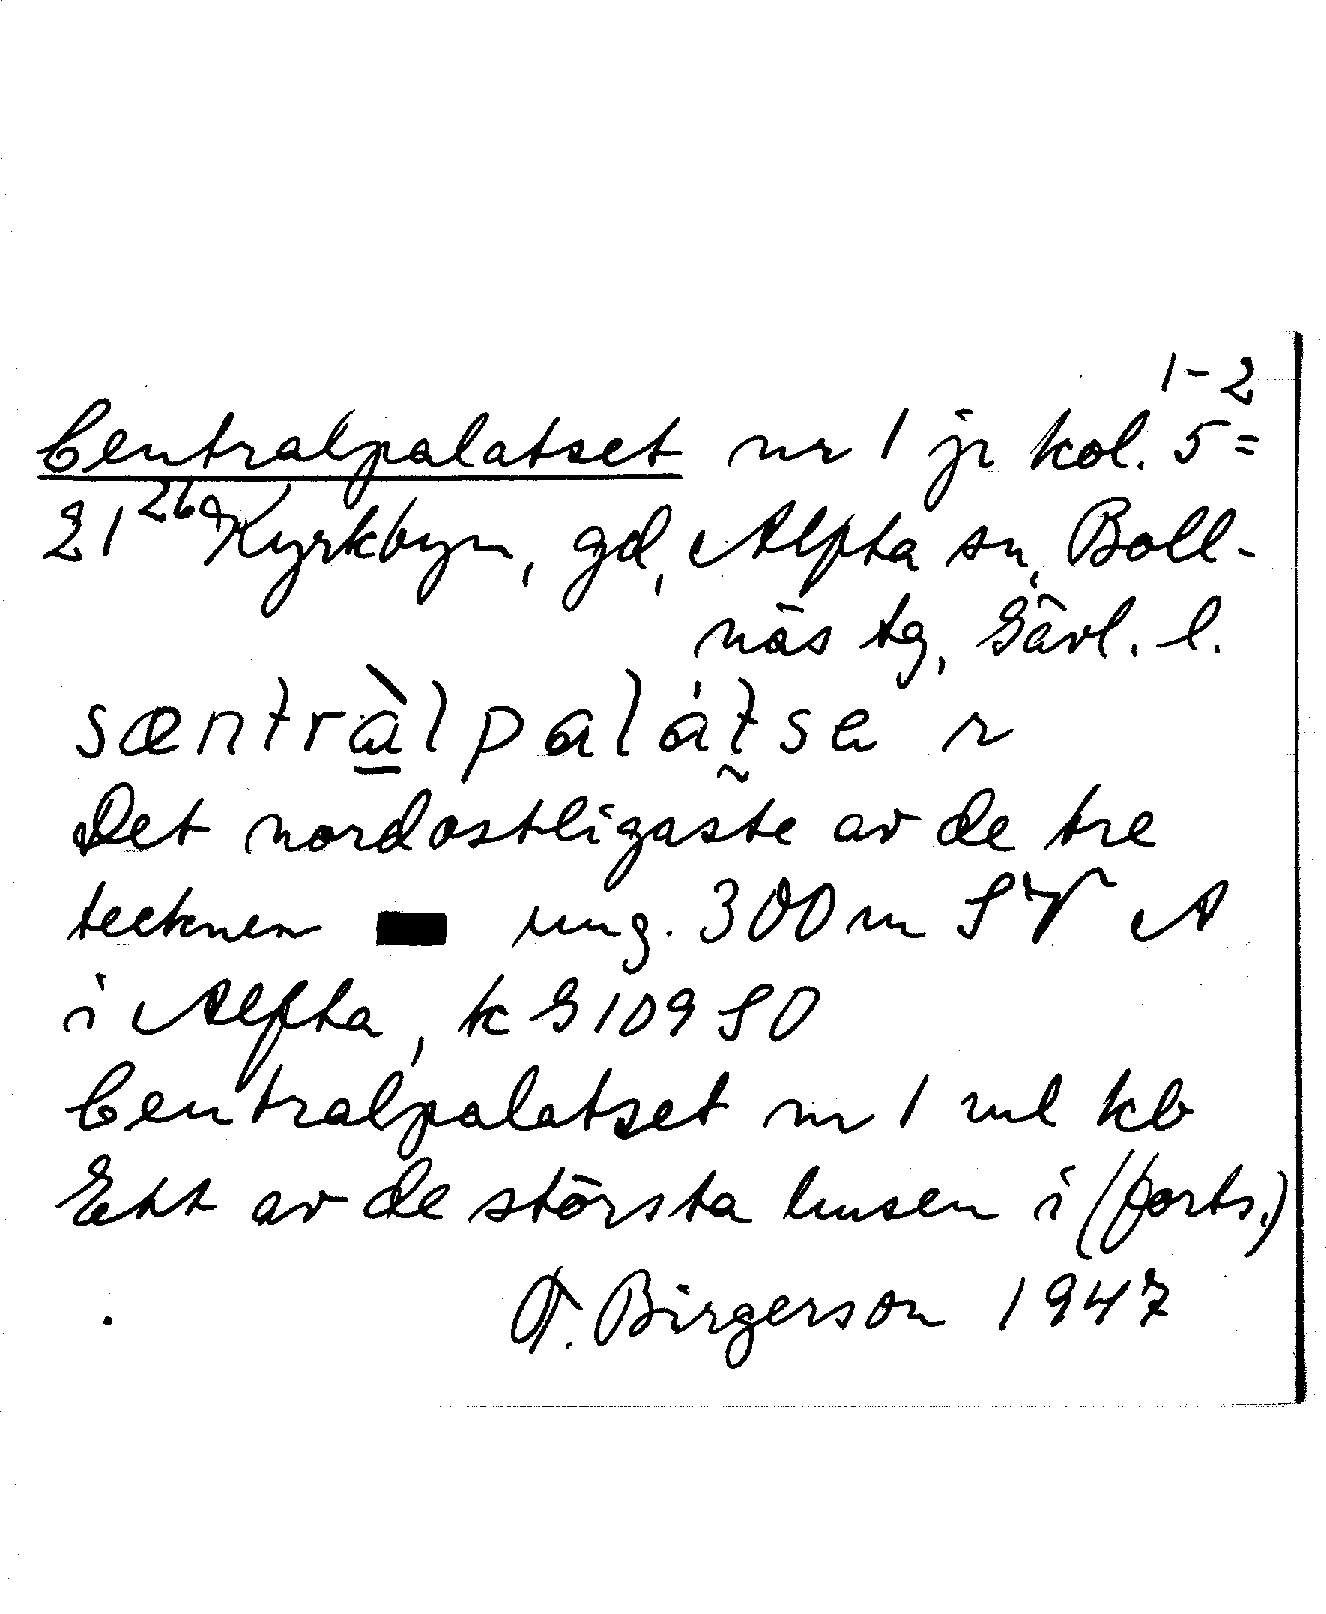 1-2
Centralpalatset nr 1 jr kol. 5=
21 26 Kyrkbyn, gd, Alfta sn, Boll-
näs tg, Gävl. l.
sæntràlpalátse r
Det nordostligaste av de tre
tecknen ung. 300 m SV A
i Alfta, k G 109 SO
Centralpalatset nr 1 ml kb
Ett av de största husen i (forts.)
Birgerson 1947